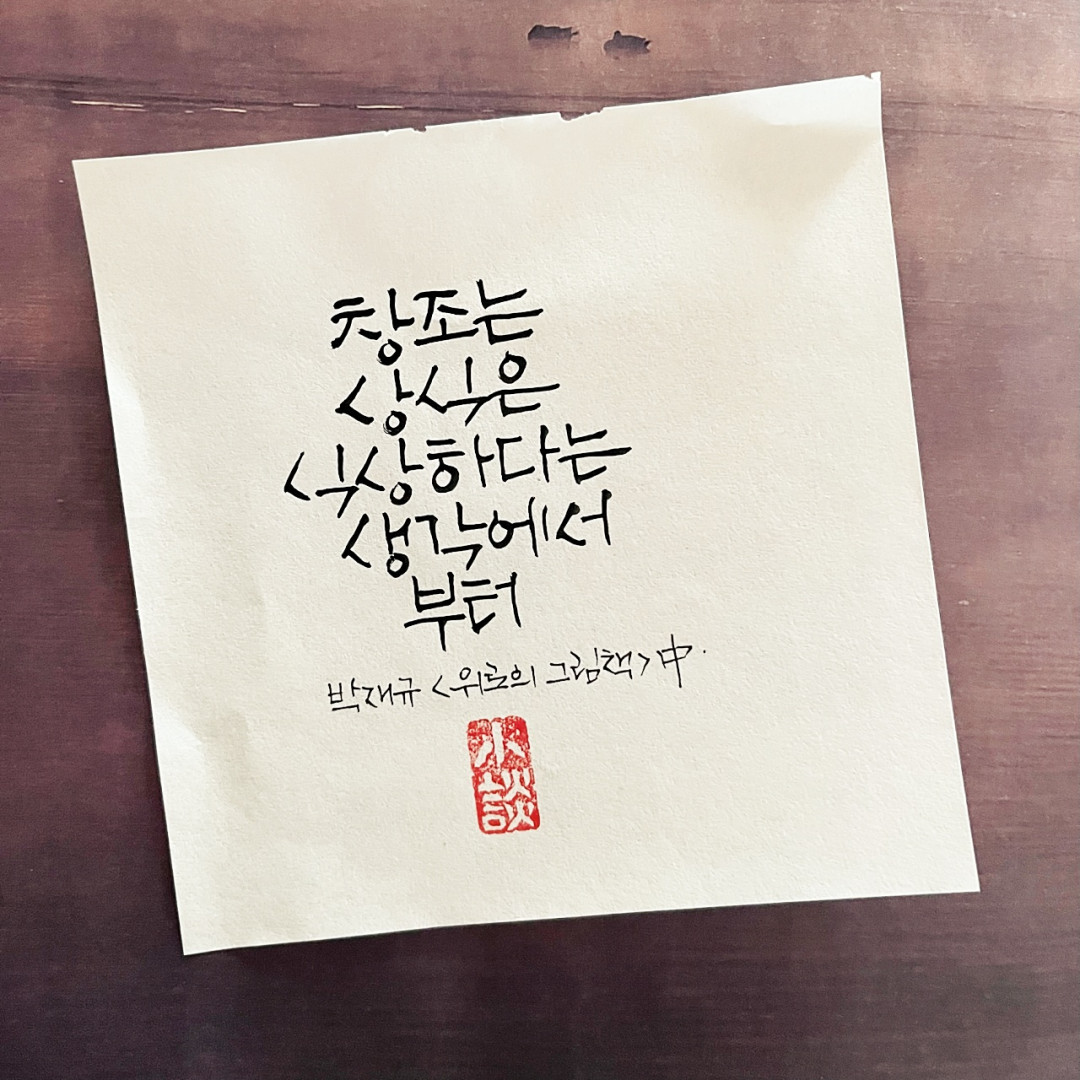 창조는
상식은
식상하다는
생각에서
부터
박재규 <위로의 그림책> 中.
小談